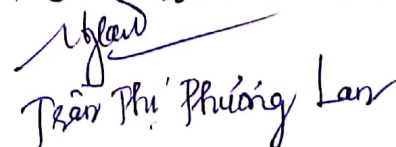 Trần Thị Phương Lan